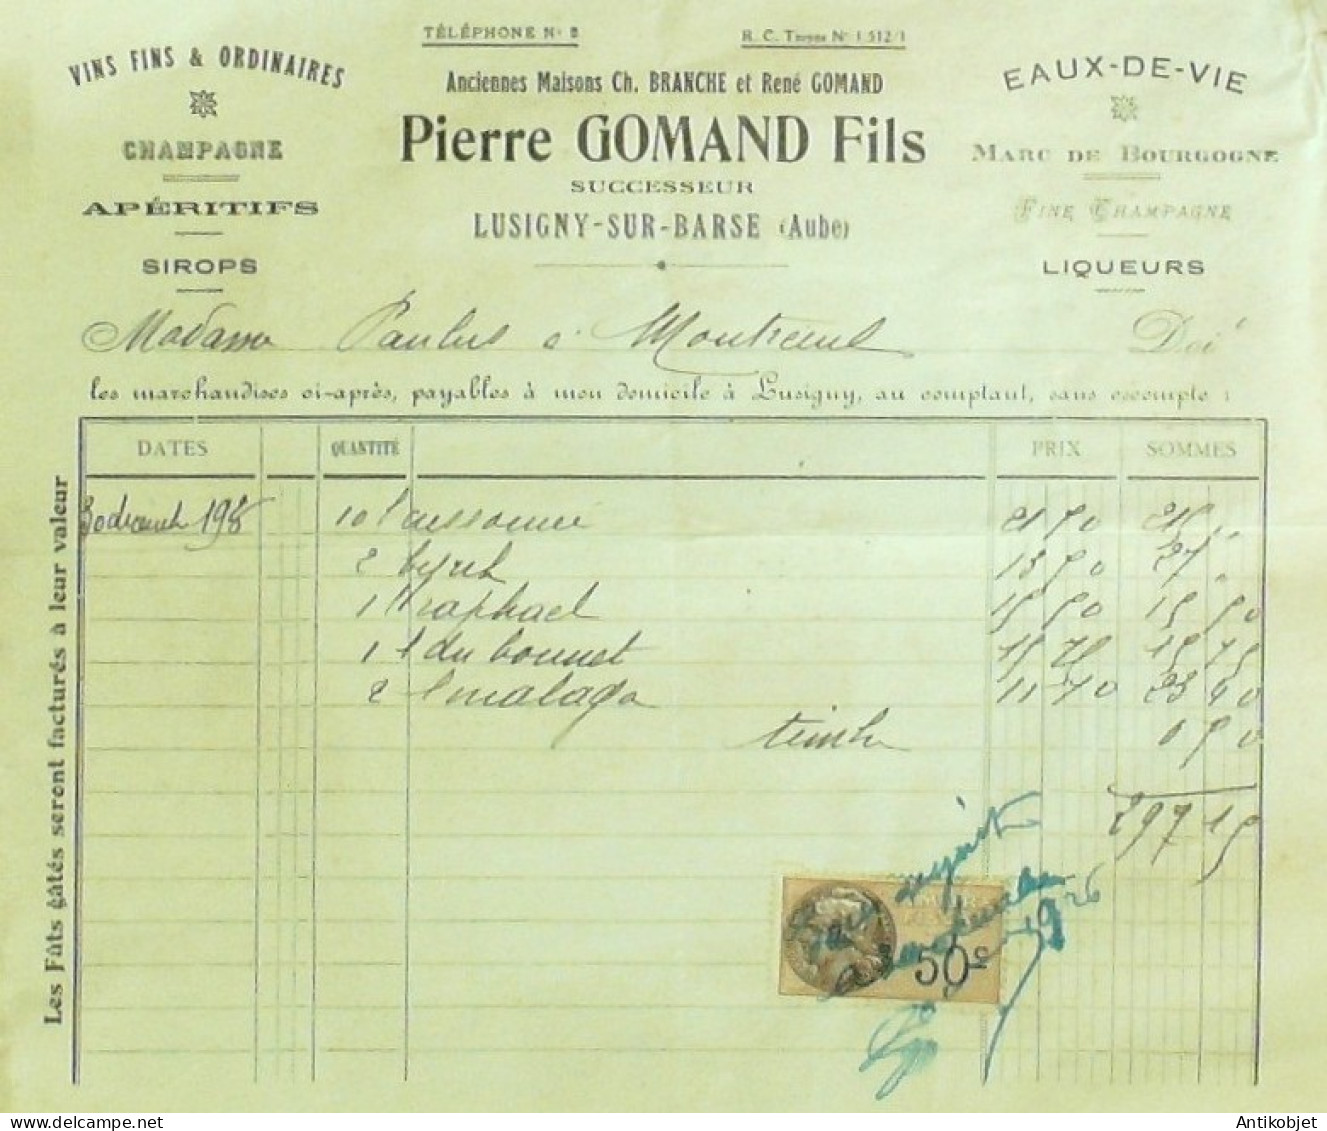 TÉLÉPHONE No 8
R. C. Troyes No 1.512/1
VINS FINS & ORDINAIRES
CHAMPAGNE
APÉRITIFS
SIROPS
Anciennes Maisons Ch. BRANCHE et René GOMAND
Pierre GOMAND Fils
SUCCESSEUR
LUSIGNY-SUR-BARSE (Aube)
EAUX-DE-VIE
MARC DE BOURGOGNE
FINE CHAMPAGNE
LIQUEURS
Madame Paulus à Montreuil Doit
les marchandises ci-après, payables à mon domicile à Lusigny, au comptant, sans escompte :
DATES QUANTITÉ PRIX SOMMES
10 l 21 50 215 "
2 byrrh 13 50 27 "
1 l raphael 15 50 15 50
1 l du bonnet 15 75 15 75
2 l malaga 11 70 23 40
timbre 0 50
297 15
Les Fûts gâtés seront facturés à leur valeur
50 c
1926
Antikobjet